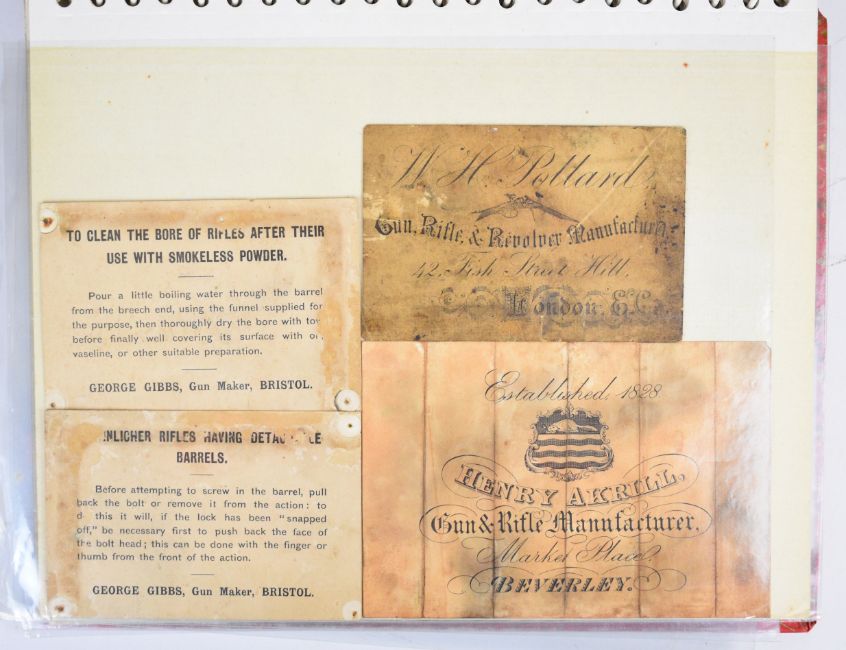 TO CLEAN THE BORE OF RIFLES AFTER THEIR
USE WITH SMOKELESS POWDER.
Pour a little boiling water through the barrel
from the breech end, using the funnel supplied for
the purpose, then thoroughly dry the bore with tow
before finally well covering its surface with oil,
vaseline, or other suitable preparation.
GEORGE GIBBS, Gun Maker, BRISTOL.
NLICHER RIFLES HAVING
BARRELS.
Before attempting to screw in the barrel, pull
back the bolt or remove it from the action: to
this it will, if the lock has been "snapped
off," be necessary first to push back the face of
the bolt head; this can be done with the finger or
thumb from the front of the action.
GEORGE GIBBS, Gun Maker, BRISTOL.
W. H. Pollard,
Gun, Rifle, & Revolver Manufacturer,
42, Fish Street Hill,
London, E.C.
Established, 1828.
HENRY AKRILL,
Gun & Rifle Manufacturer,
Market Place,
BEVERLEY.